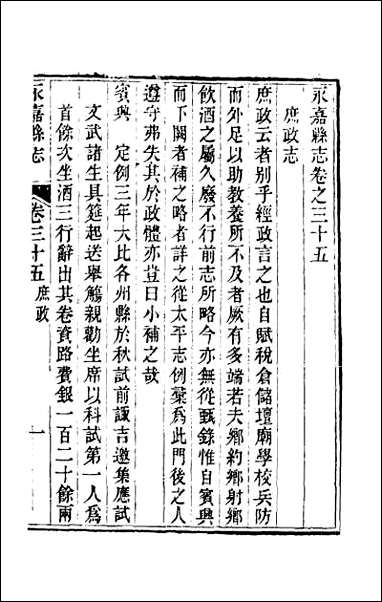 永嘉縣志卷之三十五
庶政志
庶政云者別乎經政言之也自賦稅倉儲壇廟學校兵防
而外足以助教養所不及者厥有多端若夫鄉約鄉射鄉
飲酒之屬久廢不行前志所略今亦無從甄錄惟自賓興
而下闕者補之略者詳之從太平志例彙爲此門後之人
遵守弗失其於政體亦豈曰小補之哉
賓興 定例三年大比各州縣於秋試前諏吉邀集應試
文武諸生具筵起送舉觴親勸坐席以科試第一人爲
首餘次坐酒三行辭出其卷資路費銀一百二十餘兩
永嘉縣志 卷三十五 庶政 一